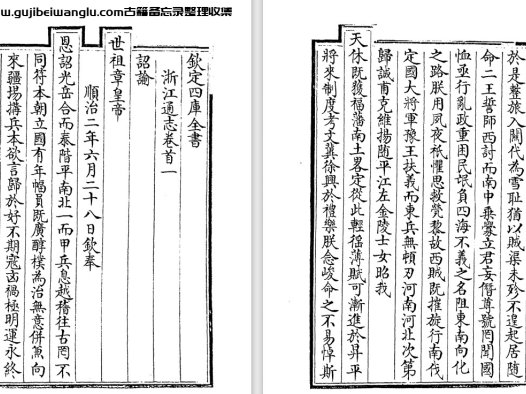 w.gujibeiwanglu.com古籍备忘录整理收集
欽定四庫全書
浙江通志卷首一
詔諭
世祖章皇帝
順治二年六月二十八日欽奉
恩詔光岳合而泰階平南北一而甲兵息越稽往古罔不
同符本朝立國有年幅員既廣醇樸為治無意併兼向
來疆埸搆兵本欲言歸於好不期寇凶禍極明運永終
於是整旅入關代為雪恥猶以賊渠未殄不遑起居隨
命二王誓師西討而南中乗釁立君妄僭尊號罔聞國
恤亟行亂政重困民氓負四海不義之名阻東南向化
之路朕用夙夜祗懼思救煢黎故西賊既摧旋行南伐
定國大將軍豫王扶義而東兵無頓刃河南河北次第
歸誠甫克維揚随平江左金陵士女昭我
天休既獲福藩南土畧定從此輕徭薄賦可漸進於昇平
將來制度考文冀徐興於禮樂朕念峻命之不易憚斯